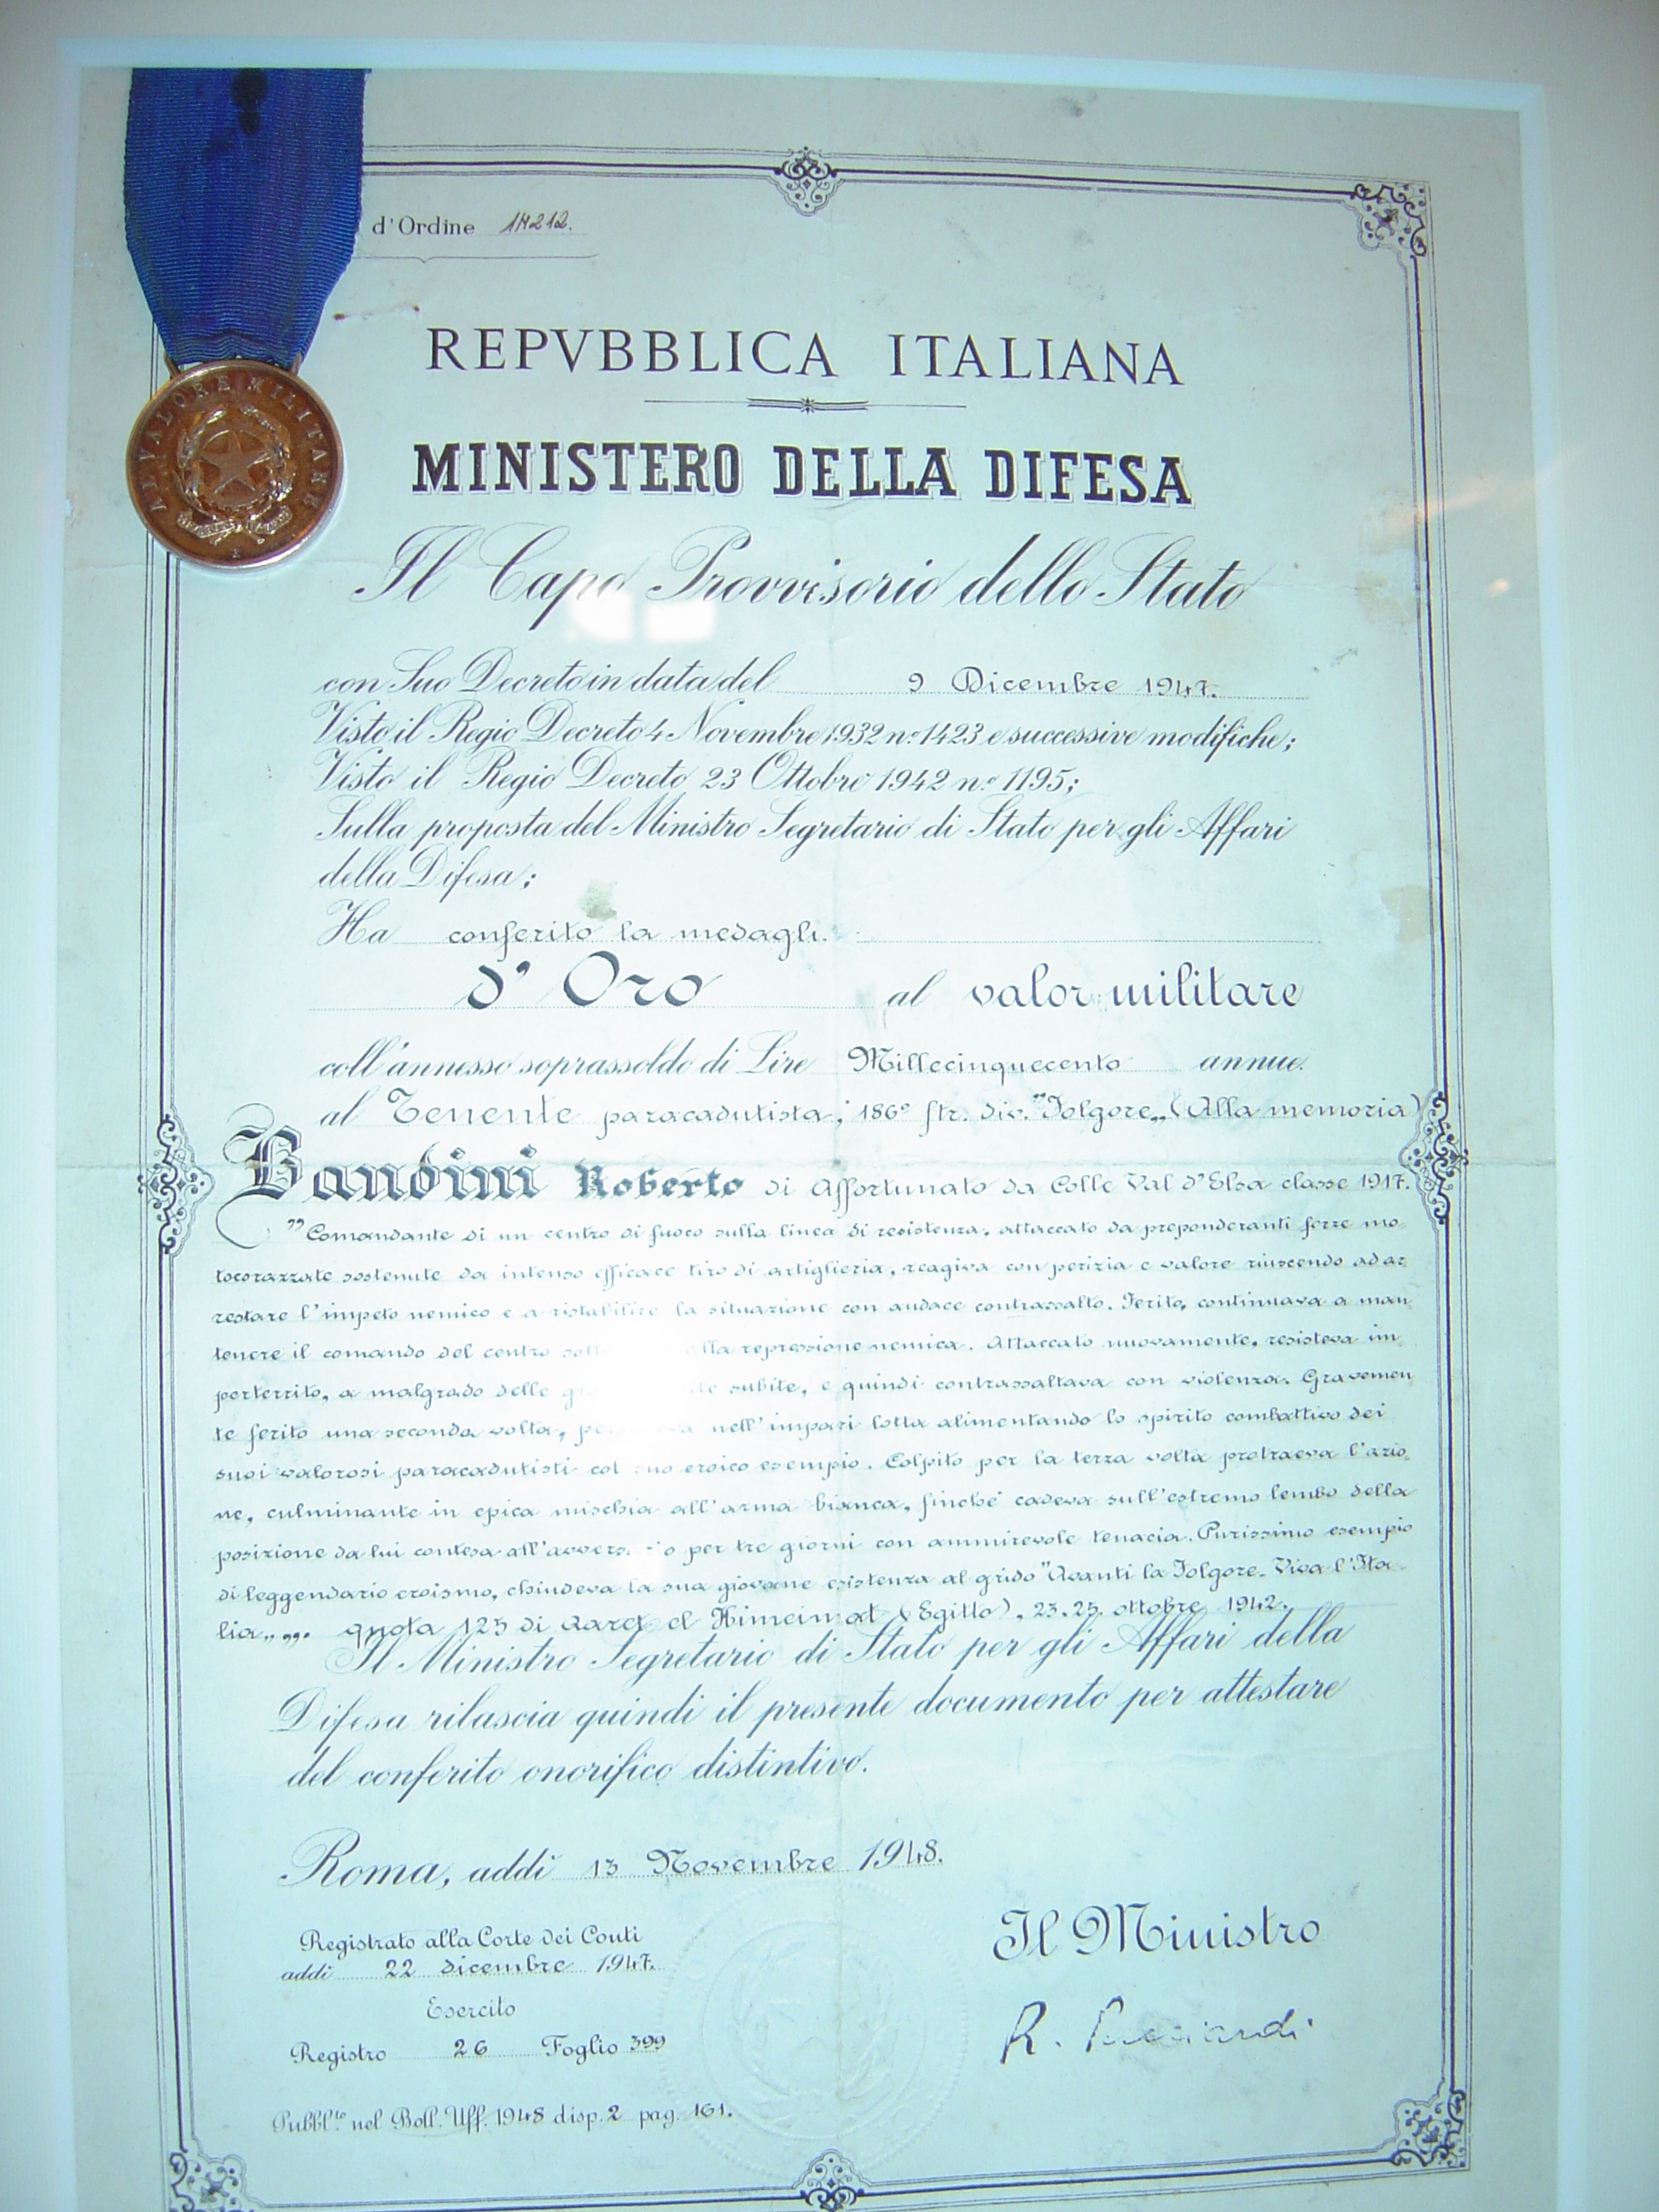 d'Ordine
AL VALORE MILITARE
REPVBBLICA ITALIANA
MINISTERO DELLA DIFESA
Il Capo Provvisorio dello Stato
con Suo Decreto in data del 9 Dicembre 1947.
Visto il Regio Decreto 4 Novembre 1932 n.º 1423 e successive modifiche;
Visto il Regio Decreto 23 Ottobre 1942 n.º 1195;
Sulla proposta del Ministro Segretario di Stato per gli Affari
della Difesa;
Ha conferito la medagli.
d'Oro al valor militare
coll'annesso soprassoldo di Lire Millecinquecento annue.
al Tenente paracadutista, 186º ftr. div. "Folgore„ (Alla memoria)
Bandini Roberto di Affortunato da Colle Val d'Elsa classe 1917.
"Comandante di un centro di fuoco sulla linea di resistenza, attaccato da preponderanti forze mo-
tocorazzate sostenute da intenso efficace tiro di artiglieria, reagiva con perizia e valore riuscendo ad ar-
restare l'impeto nemico e a ristabilire la situazione con audace contrassalto. Ferito, continuava a man-
tenere il comando del centro lla repressione nemica. Attaccato nuovamente, resisteva im-
perterrito, a malgrado delle subite, e quindi contrassaltava con violenza. Gravemen-
te ferito una seconda volta, nell'impari lotta alimentando lo spirito combattivo dei
suoi valorosi paracadutisti col suo eroico esempio. Colpito per la terza volta protraeva l'azio-
ne, culminante in epica mischia all'arma bianca, finché cadeva sull'estremo lembo della
posizione da lui contesa all'avvers o per tre giorni con ammirevole tenacia. Purissimo esempio
di leggendario eroismo, chiudeva la sua giovane esistenza al grido "Avanti la Folgore. Viva l'Ita-
lia„„. quota 125 di Qaret el Himeimat (Egitto), 23.25. ottobre 1942.
Il Ministro Segretario di Stato per gli Affari della
Difesa rilascia quindi il presente documento per attestare
del conferito onorifico distintivo.
Roma, addì 13 Novembre 1948.
Registrato alla Corte dei Conti
addì 22 dicembre 1947.
Esercito
Registro 26 Foglio 399
Pubbl.to nel Boll. Uff. 1948 disp. 2 pag. 161.
Il Ministro
R. Pacciardi